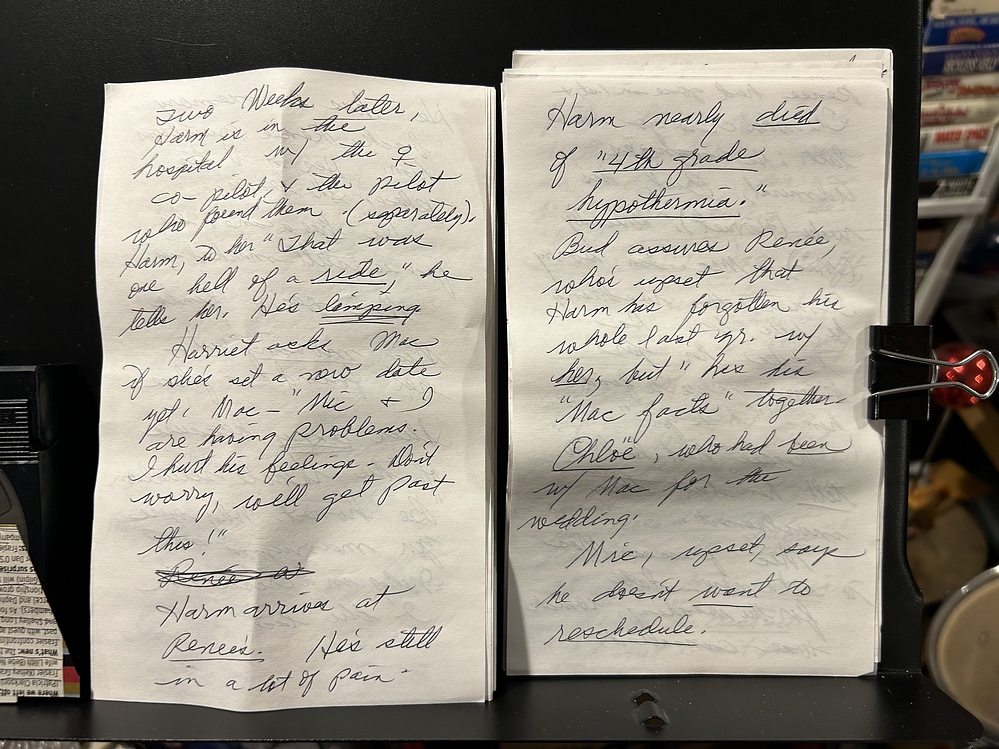 Two Weeks later,
Harm is in the
hospital w/ the 9
co-pilot, & the pilot
who found them. (separately).
Harm, to her "That was
one hell of a ride," he
tells her. He's limping.
Harriet asks Mac
if she's set a new date
yet. Mac- "Mic & I
are having problems.
I hurt his feelings - Don't
worry, we'll get past
this!"
Renée a
Harm arrives at
Renée's. He's still
in a lot of pain-
Harm nearly died
of "4th grade
hypothermia."
Bud assures Renée,
who's upset that
Harm his forgotten his
whole last yr. w/
her, but "his his
"Mac facts" together-
Chloë, who had been
w/ Mac for the
wedding.
Mic, upset, says
he doesn't want to
reschedule.